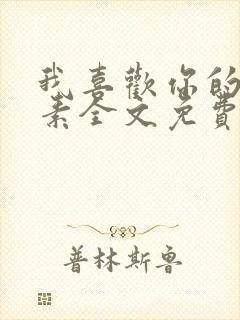 我喜歡你的
素全文免費
普林斯鲁